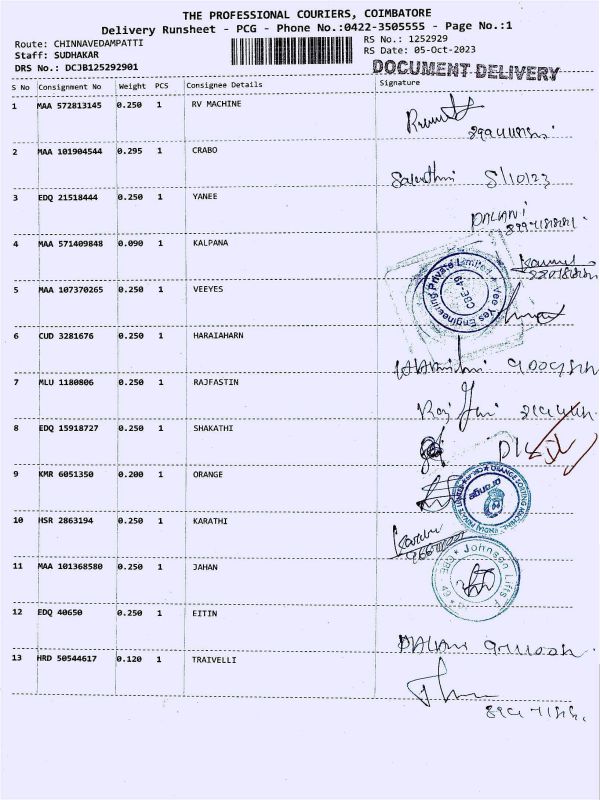 THE PROFESSIONAL COURIERS, COIMBATORE
Delivery Runsheet - PCG - Phone No.:0422-3505555 - Page No.:1
Route: CHINNAVEDAMPATTI
RS No.: 1252929
Staff: SUDHAKAR
RS Date: 05-Oct-2023
DRS No.: DCJB125292901
DOCUMENT DELIVERY
S No Consignment No Weight PCS Consignee Details Signature
1 MAA 572813145 0.250 1 RV MACHINE
2 MAA 101904544 0.295 1 CRABO
5/10/23
3 EDQ 21518444 0.250 1 YANEE
4 MAA 571409848 0.090 1 KALPANA
5 MAA 107370265 0.250 1 VEEYES
Vee Yes Engineering Private Limited
CBE-49
6 CUD 3281676 0.250 1 HARAIAHARN
7 MLU 1180806 0.250 1 RAJFASTIN
Raj
8 EDQ 15918727 0.250 1 SHAKATHI
9 KMR 6051350 0.200 1 ORANGE
ORANGE SORTING
10 HSR 2863194 0.250 1 KARATHI
11 MAA 101368580 0.250 1 JAHAN
Johnson Lifts
12 EDQ 40650 0.250 1 EITIN
13 HRD 50544617 0.120 1 TRAIVELLI